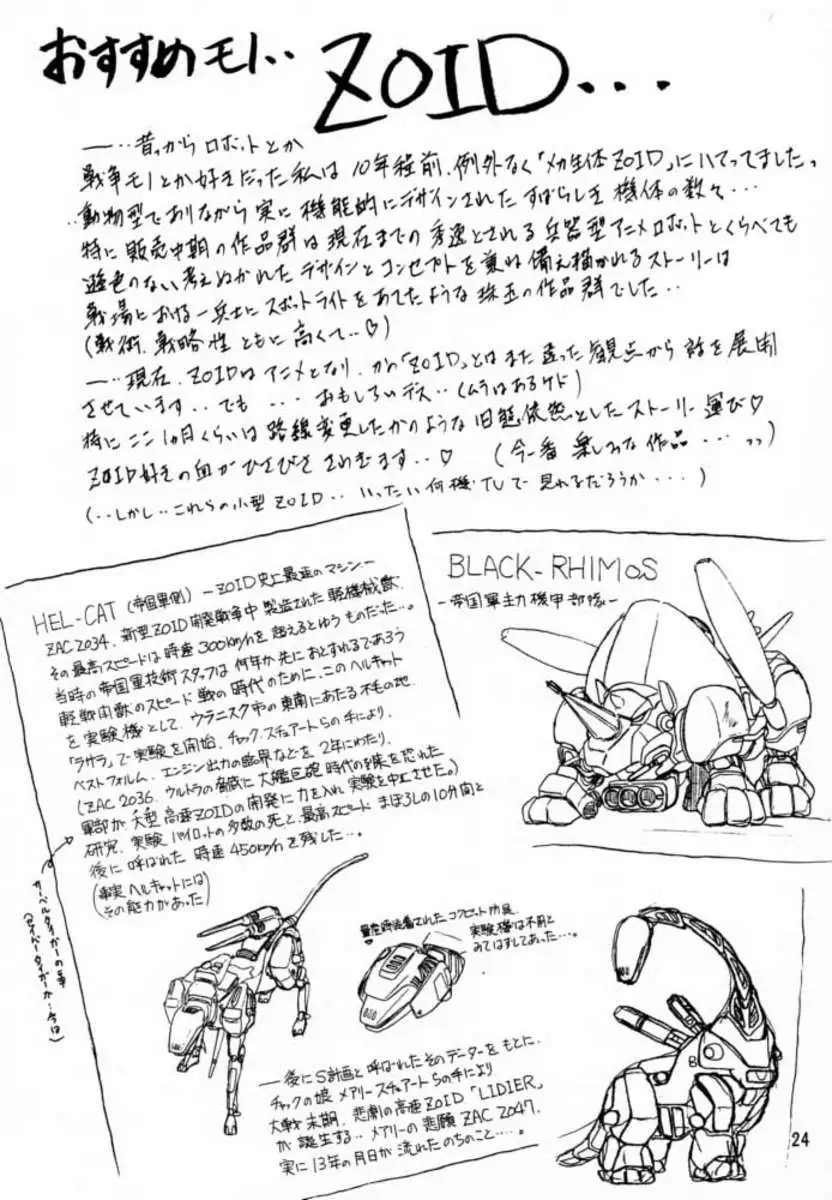 おすすめモノ‥ ZOID...
―‥昔っからロボットとか
戦争モノとか好きだった私は10年程前、例外なく「メカ生体ZOID」にハマってました
‥動物型でありながら実に機能的にデザインされたすばらしき機体の数々…
特に販売中期の作品群は現在までの秀逸とされる兵器型アニメロボットとくらべても
遜色のない考えぬかれたデザインとコンセプトを兼ね備え描かれるストーリーは
戦場における一兵士にスポットライトをあてたような珠玉の作品群でした‥
(戦術、戦略性ともに高くて‥♡)
―‥現在、ZOIDはアニメとなり、かの「ZOID」とはまた違った観点から話を展開
させています‥でも…おもしろいデス‥(ムラはあるケド)
特にここ1ヵ月くらいは路線変更したかのような旧態依然としたストーリー運び♡
ZOID好きの血がひさびささわぎます‥♡ (今一番楽しみな作品…
(‥しかし‥これらの小型ZOID‥いったい何機TVで見れるだろうか…)
HEL-CAT (帝国軍側) ―ZOID史上最速のマシン―
ZAC2034、新型ZOID開発戦争中製造された軽機械獣、
その最高スピードは時速300km/hを超えるとゆうものだった…。
当時の帝国軍技術スタッフは何年か先におとずれるであろう
軽戦闘獣のスピード戦の時代のために、このヘルキャット
を実験機として、ウラニスク市の東南にあたる不毛の地、
「ラサラ」で実験を開始、チャック、スチュアートらの手により、
ベストフォルム、エンジン出力の臨界などを2年にわたり、
(ZAC2036、ウルトラの脅威に大艦巨砲時代の到来を恐れた
軍部が、大型高速ZOIDの開発に力を入れ実験を中止させた。)
研究、実験パイロットの多数の死と、最高スピードまぼろしの10分間と
後に呼ばれた時速450km/hを残した…。
(事実ヘルキャットには
その能力があった)
サーベルタイガーの事
(セイバータイガーか…今は)
BLACK-RHIMOS
―帝国軍主力機甲部隊―
量産時装着されたコクピット防具、
実験機は不用と
みてはずしてあった…。
―後にS計画と呼ばれたそのデーターをもとに、
チャックの娘メアリースチュアートらの手により
大戦末期、悲劇の高速ZOID「LIDIER」
が誕生する‥メアリーの悲願ZAC2047、
実に13年の月日が流れたのちのこと…。
24